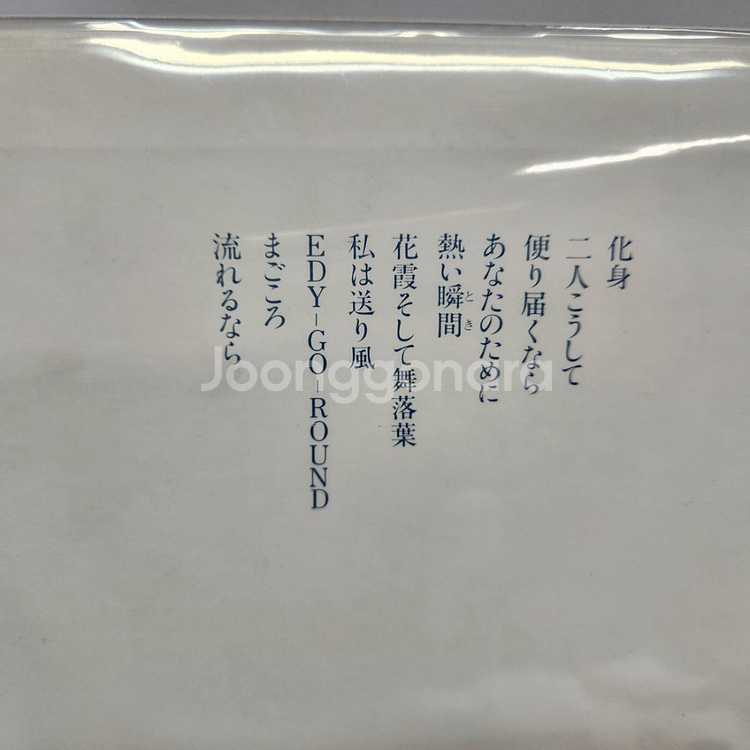 化身
二人こうして
便り届くなら
あなたのために
熱い瞬間
とき
花霞そして舞落葉
私は送り風
EDY-GO-ROUND
まごころ
流れるなら
Joonggonara